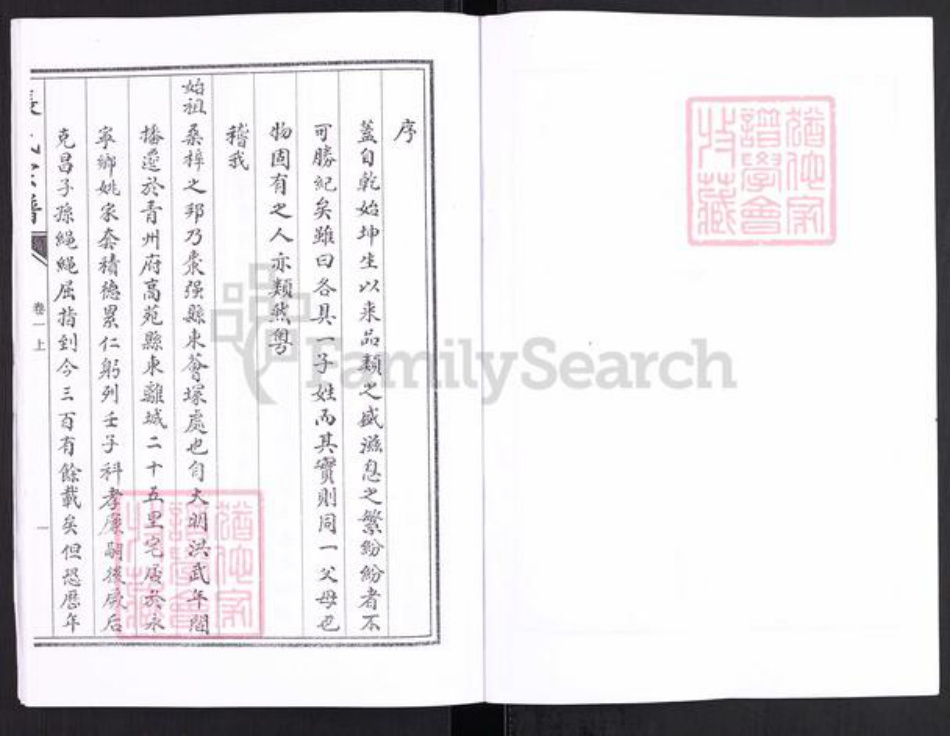 序
蓋自乾始坤生以來品類之盛滋息之繁紛紛者不
可勝紀矣雖曰各具一子姓而其實則同一父母也
物固有之人亦類然粵
稽我
始祖桑梓之邦乃棗强縣東薈塚處也自大明洪武年間
播遷於青州府高苑縣東離城二十五里宅居於永
寧鄉姚家套積德累仁躬列壬子科孝廉嗣後厥后
克昌子孫繩繩屈指到今三百有餘載矣但恐歷年
氏宗譜
卷一上
一
猶他家譜學會收藏
猶他家譜學會收藏
FamilySearch